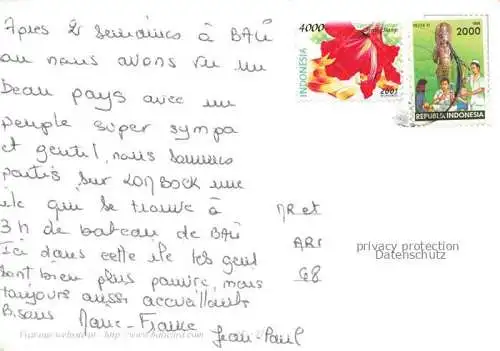 Après 2 semaines à BALI
ou nous avons vu un
beau pays avec un
peuple super sympa
et gentil, nous sommes
partis sur LOMBOCK une
île qui se trouve à
3h de bateau de BALI
Ici dans cette île les gens
sont bien plus pauvre, mais
toujours aussi accueillants
Bisous Marie-France
Jean-Paul
4000
INDONESIA
2001
2000
REPUBLIK INDONESIA
MR et
privacy protection
Datenschutz
68